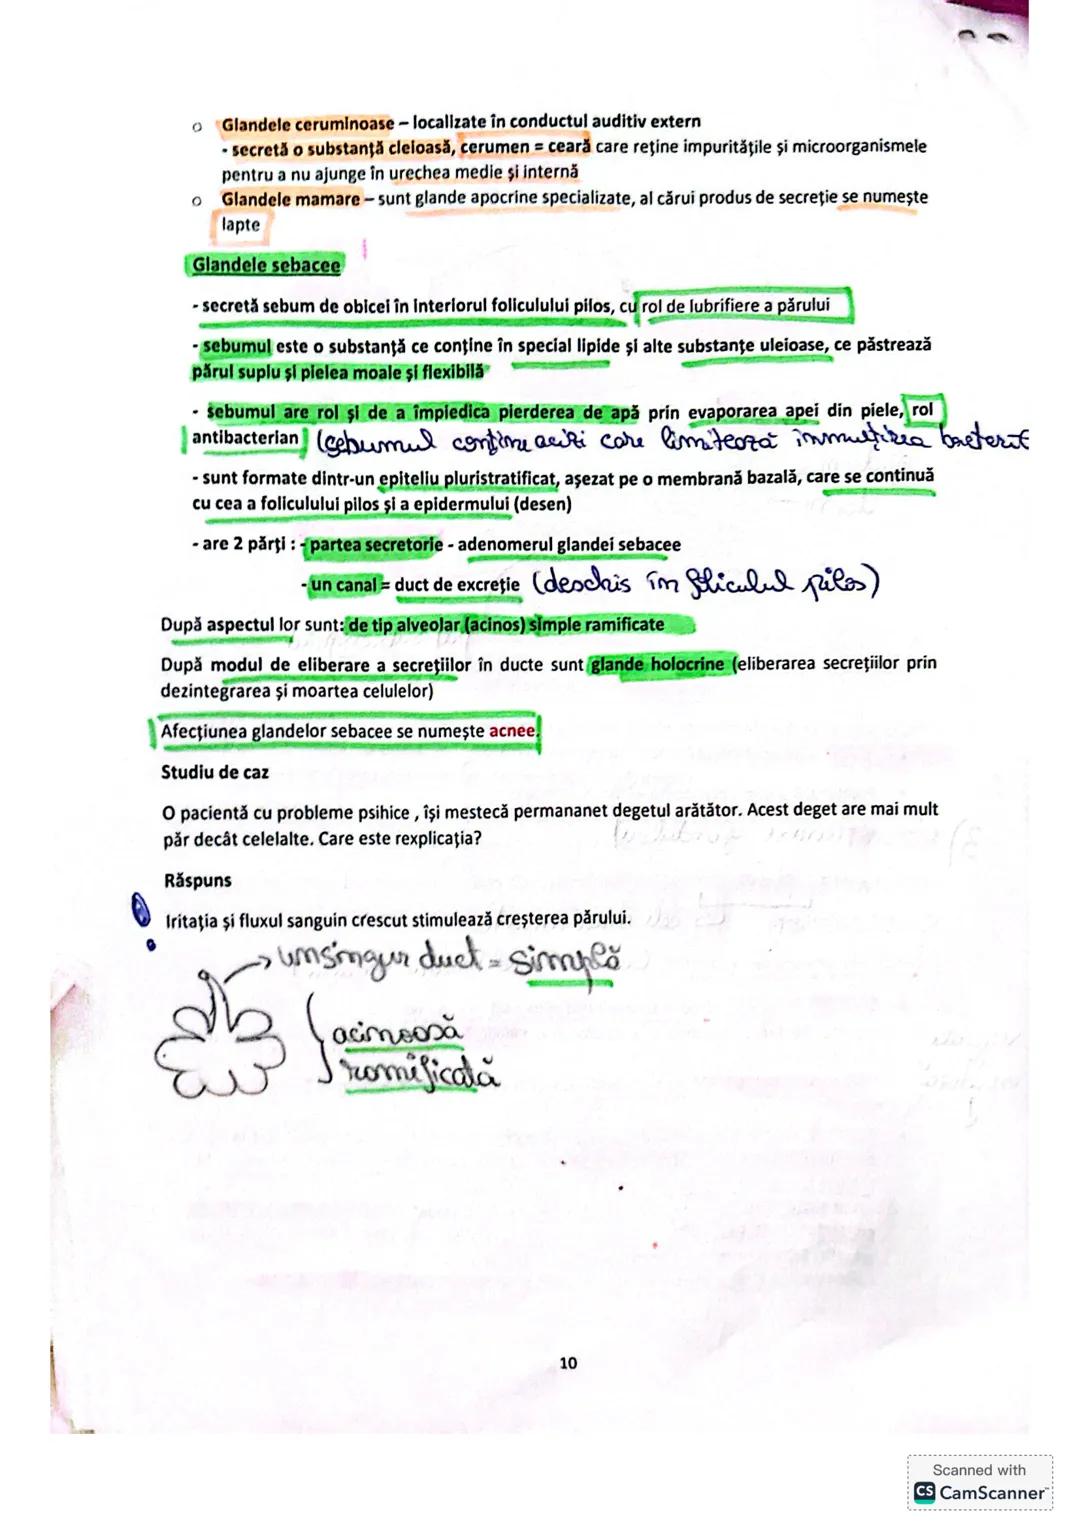 o Glandele ceruminoase – localizate în conductul auditiv extern
- secretă o substanță cleioasă, cerumen = ceară care reține impuritățile și microorganismele
pentru a nu ajunge în urechea medie și internă
o Glandele mamare – sunt glande apocrine specializate, al cărui produs de secreție se numește
lapte
Glandele sebacee
- secretă sebum de obicei în interiorul foliculului pilos, cu rol de lubrifiere a părului
- sebumul este o substanță ce conține în special lipide și alte substanțe uleioase, ce păstrează
părul suplu și pielea moale și flexibilă
- sebumul are rol și de a împiedica pierderea de apă prin evaporarea apei din piele, rol
antibacterian (sebumul conține acizi care limitează înmulțirea
- sunt formate dintr-un epiteliu pluristratificat, așezat pe o membrană bazală, care se continuă
cu cea a foliculului pilos și a epidermului (desen)
- are 2 părți : - partea secretorie - adenomerul glandei sebacee
- un canal = duct de excreție (deschis în foliculul pilos)
După aspectul lor sunt: de tip alveolar (acinos) simple ramificate
După modul de eliberare a secrețiilor în ducte sunt glande holocrine (eliberarea secrețiilor prin
dezintegrarea și moartea celulelor)
Afecțiunea glandelor sebacee se numește acnee.
Studiu de caz
O pacientă cu probleme psihice , își mestecă permananet degetul arătător. Acest deget are mai mult
păr decât celelalte. Care este rexplicația?
Răspuns
Iritația și fluxul sanguin crescut stimulează creșterea părului.
→ unsingur duct = simplă
acinoasă
ramificată
10
Scanned with
CS CamScanner